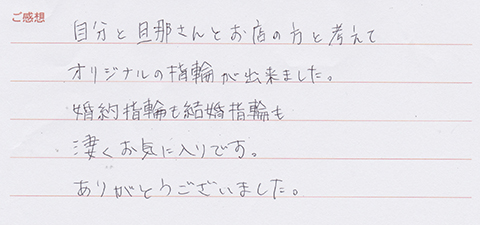 ご感想
自分と旦那さんとお店の方と考えて
オリジナルの指輪が出来ました。
婚約指輪も結婚指輪も
凄くお気に入りです。
ありがとうございました。